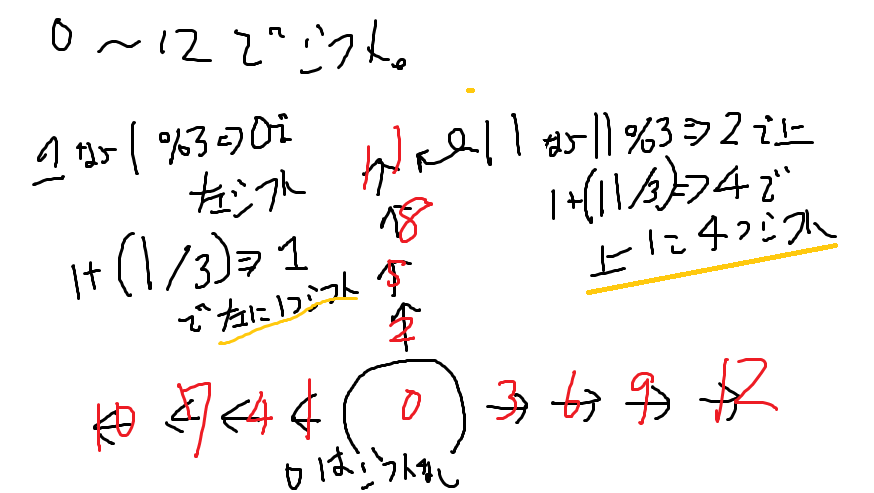 0～12でシフト。
1なら1%3⇒0で
左シフト
1+(1/3)⇒1
で左に1つシフト
11なら11%3⇒2で上
1+(11/3)⇒4で
上に4つシフト
11
8
5
2
10 7 4 1 0 3 6 9 12
0はシフトなし